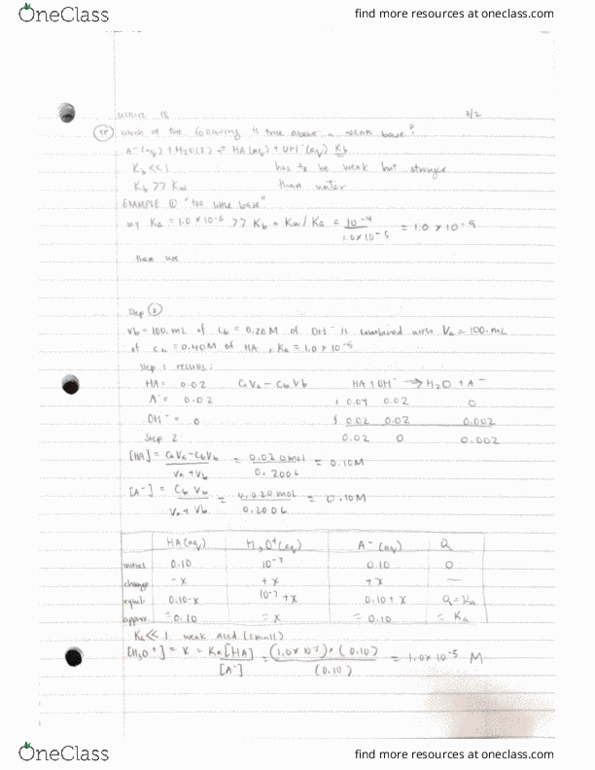 OneClass
find more resources at oneclass.com
Lecture 18 3/2
Which of the following is true about a weak base?
A⁻(aq) + H₂O(l) ⇌ HA(aq) + OH⁻(aq) Kb
Kb << 1 has to be weak but stronger
Kb >> Kw than water
EXAMPLE ① "
Ka = 1.0 × 10⁻⁵ >> Kb = Kw/Ka = 10⁻¹⁴ / 1.0×10⁻⁵ = 1.0 × 10⁻⁹
than
Step ②
Vb = 100. mL of Cb = 0.20M of OH⁻ is combined with Va = 100. mL
of Ca = 0.40M of HA, Ka = 1.0 × 10⁻⁵
Step 1 results:
HA = 0.02 CaVa - CbVb HA + OH⁻ → H₂O + A⁻
A⁻ = 0.02 0.04 0.02 0
OH⁻ = 0 0.02 0.02 0.002
Step 2 0.02 0 0.002
[HA] = CaVa-CbVb / Va+Vb = 0.020mol / 0.200L = 0.10M
[A⁻] = CbVb / Va+Vb = 0.020mol / 0.200L = 0.10M
HA(aq) H₃O⁺(aq) A⁻(aq) Q
initial 0.10 10⁻⁷ 0.10 0
change -x +x +x —
equil 0.10-x 10⁻⁷+x 0.10+x Q=Ka
approx ≈0.10 ≈x ≈0.10 = Ka
Ka<< 1 weak acid (small)
[H₃O⁺] = x = Ka[HA] / [A⁻] = (1.0×10⁻⁵)·(0.10) / (0.10) = 1.0×10⁻⁵ M
OneClass
find more resources at oneclass.com